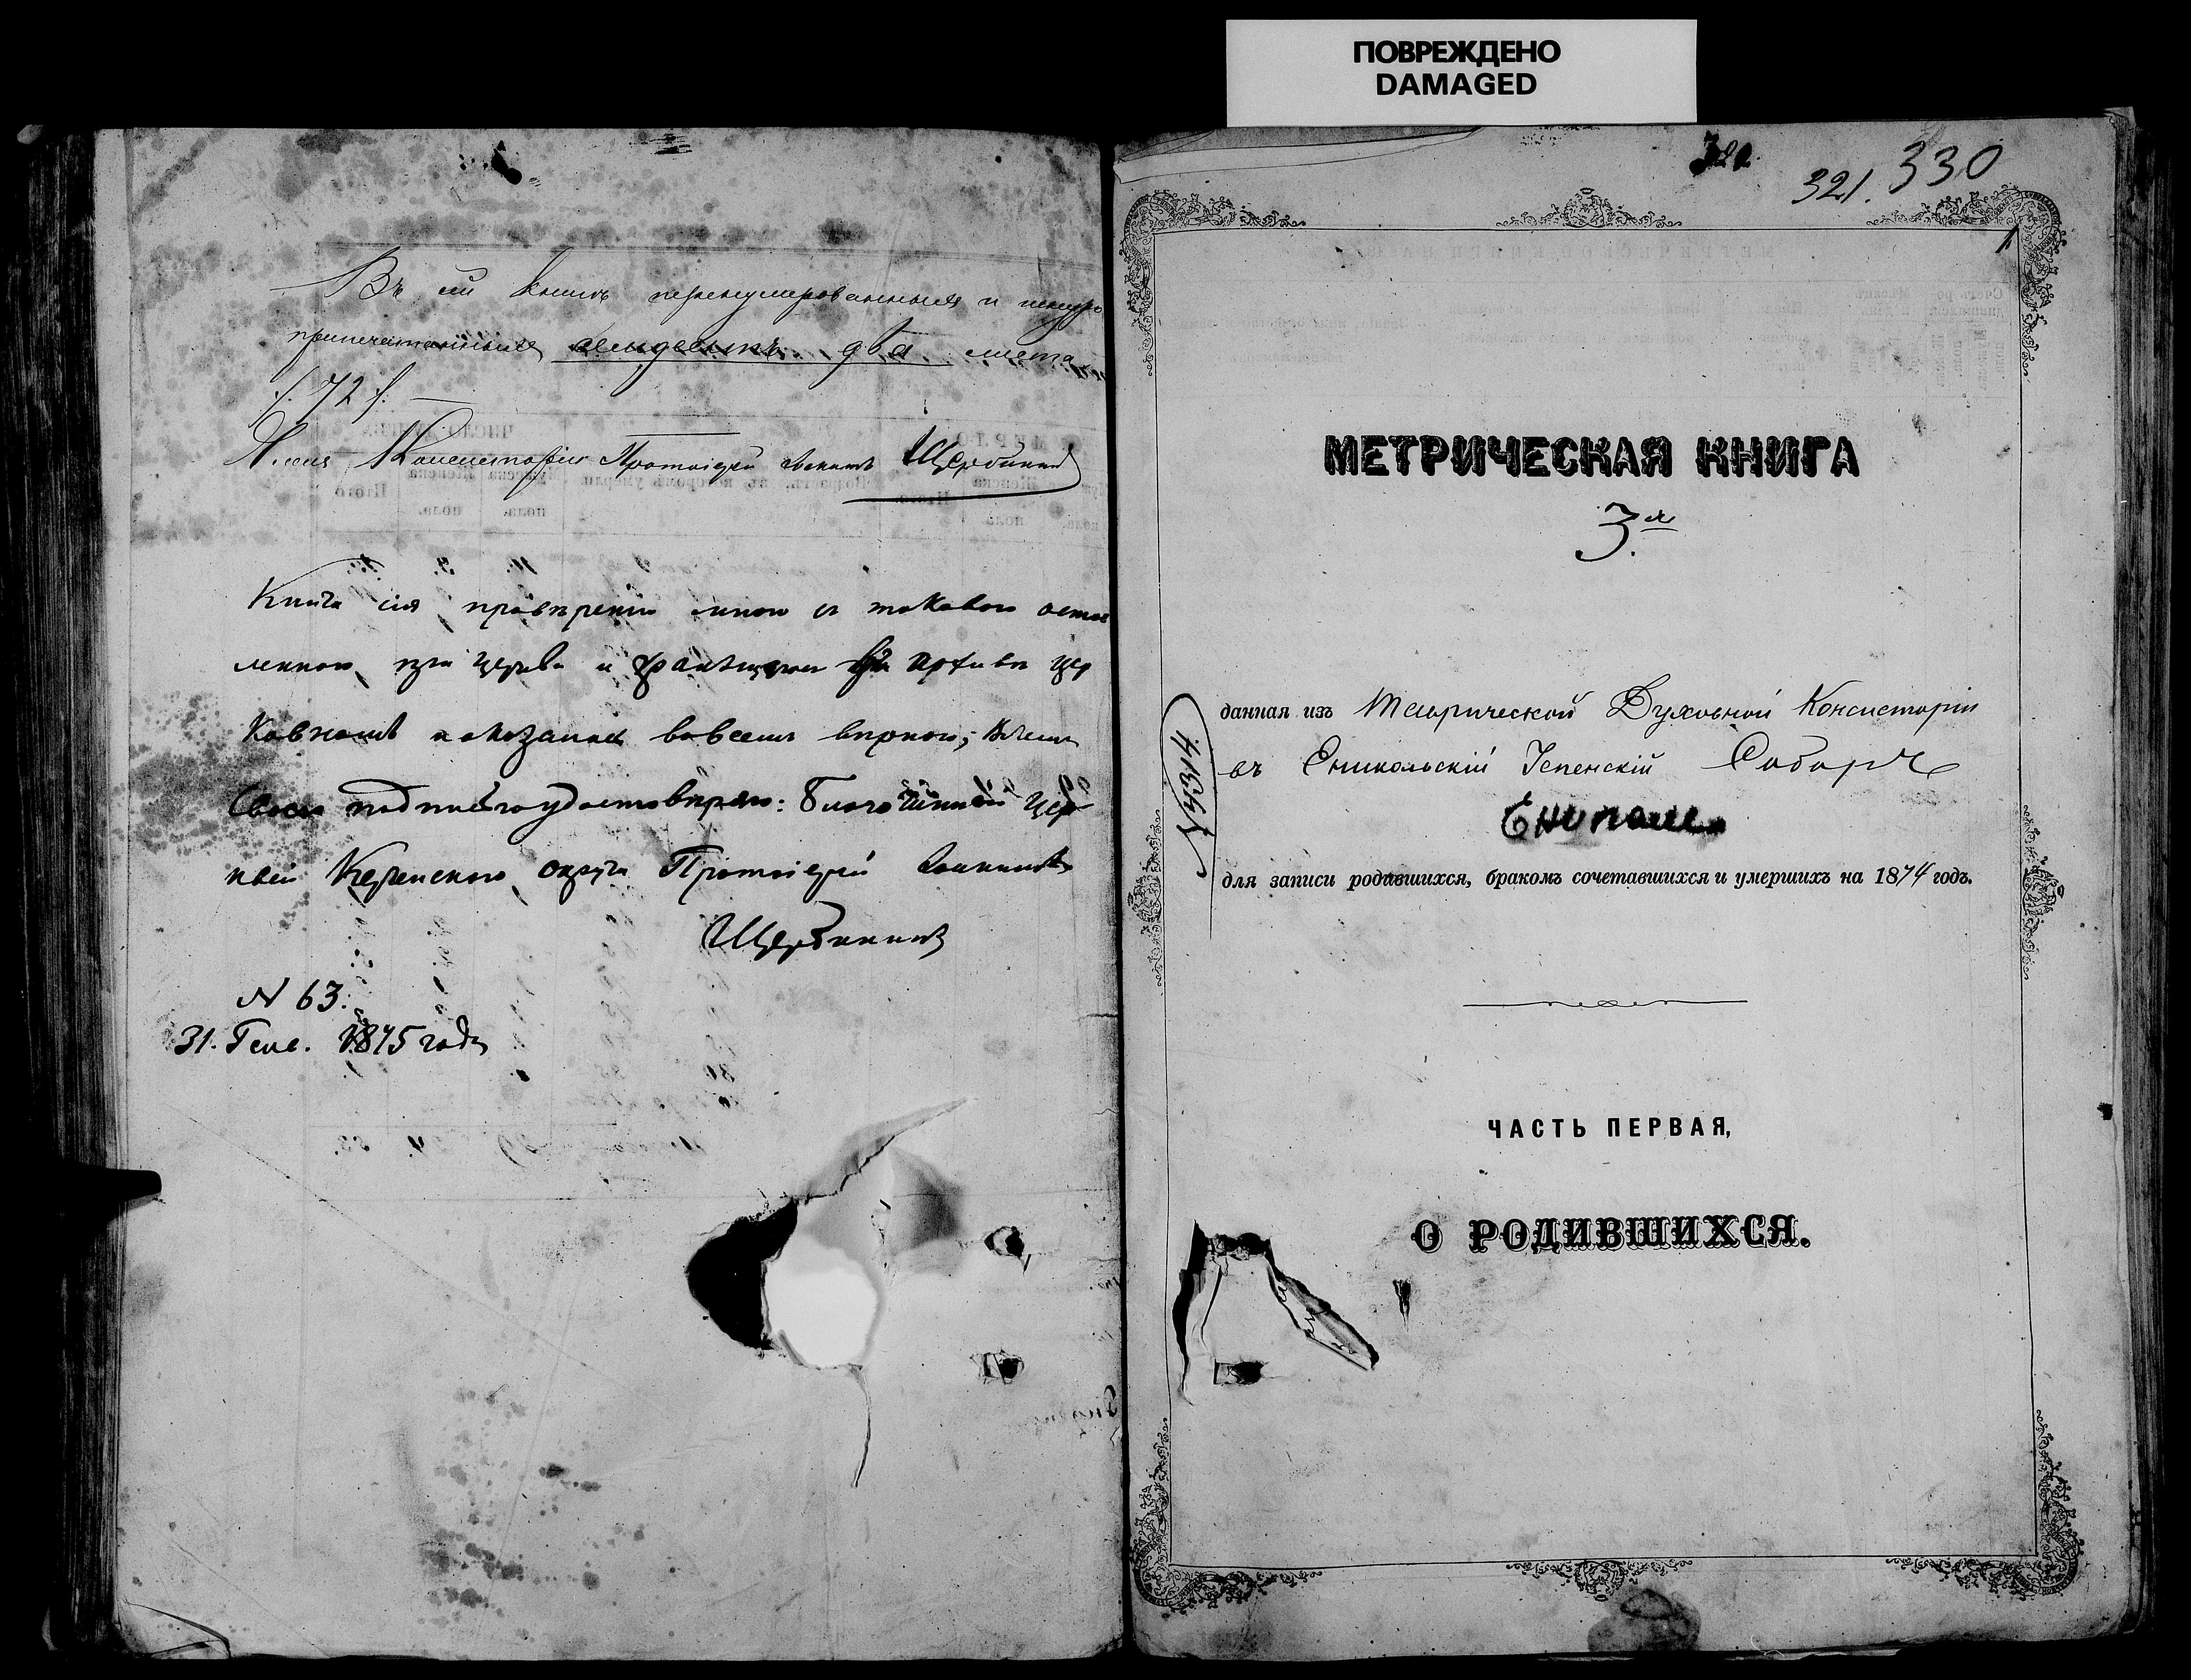 ПОВРЕЖДЕНО
DAMAGED
Въ сей книгѣ перенумерованныхъ и шнуро
припечатанныхъ семьдесятъ два листа
/. 72 /. —
Членъ Консисторіи Протоіерей Іоаннъ Щербининъ
Книга сія провѣрена мною съ таковою остав
ленною при церкви и хранящеюся въ архивѣ цер
ковномъ и оказалась во всемъ вѣрною; въ чемъ
своею подписью удостовѣряю: Благочинный Цер
квей Керченскаго округа Протоіерей Іоаннъ
Щербининъ
N 63.
31. Генв. 1875 года
321. 330
1
МЕТРИЧЕСКАЯ КНИГА
3я
данная изъ Таврической Духовной Консисторіи
въ Еникольскій Успенскій Соборъ
Ениколь
N 4314
для записи родившихся, бракомъ сочетавшихся и умершихъ на 1874 годъ.
ЧАСТЬ ПЕРВАЯ,
О РОДИВШИХСЯ.